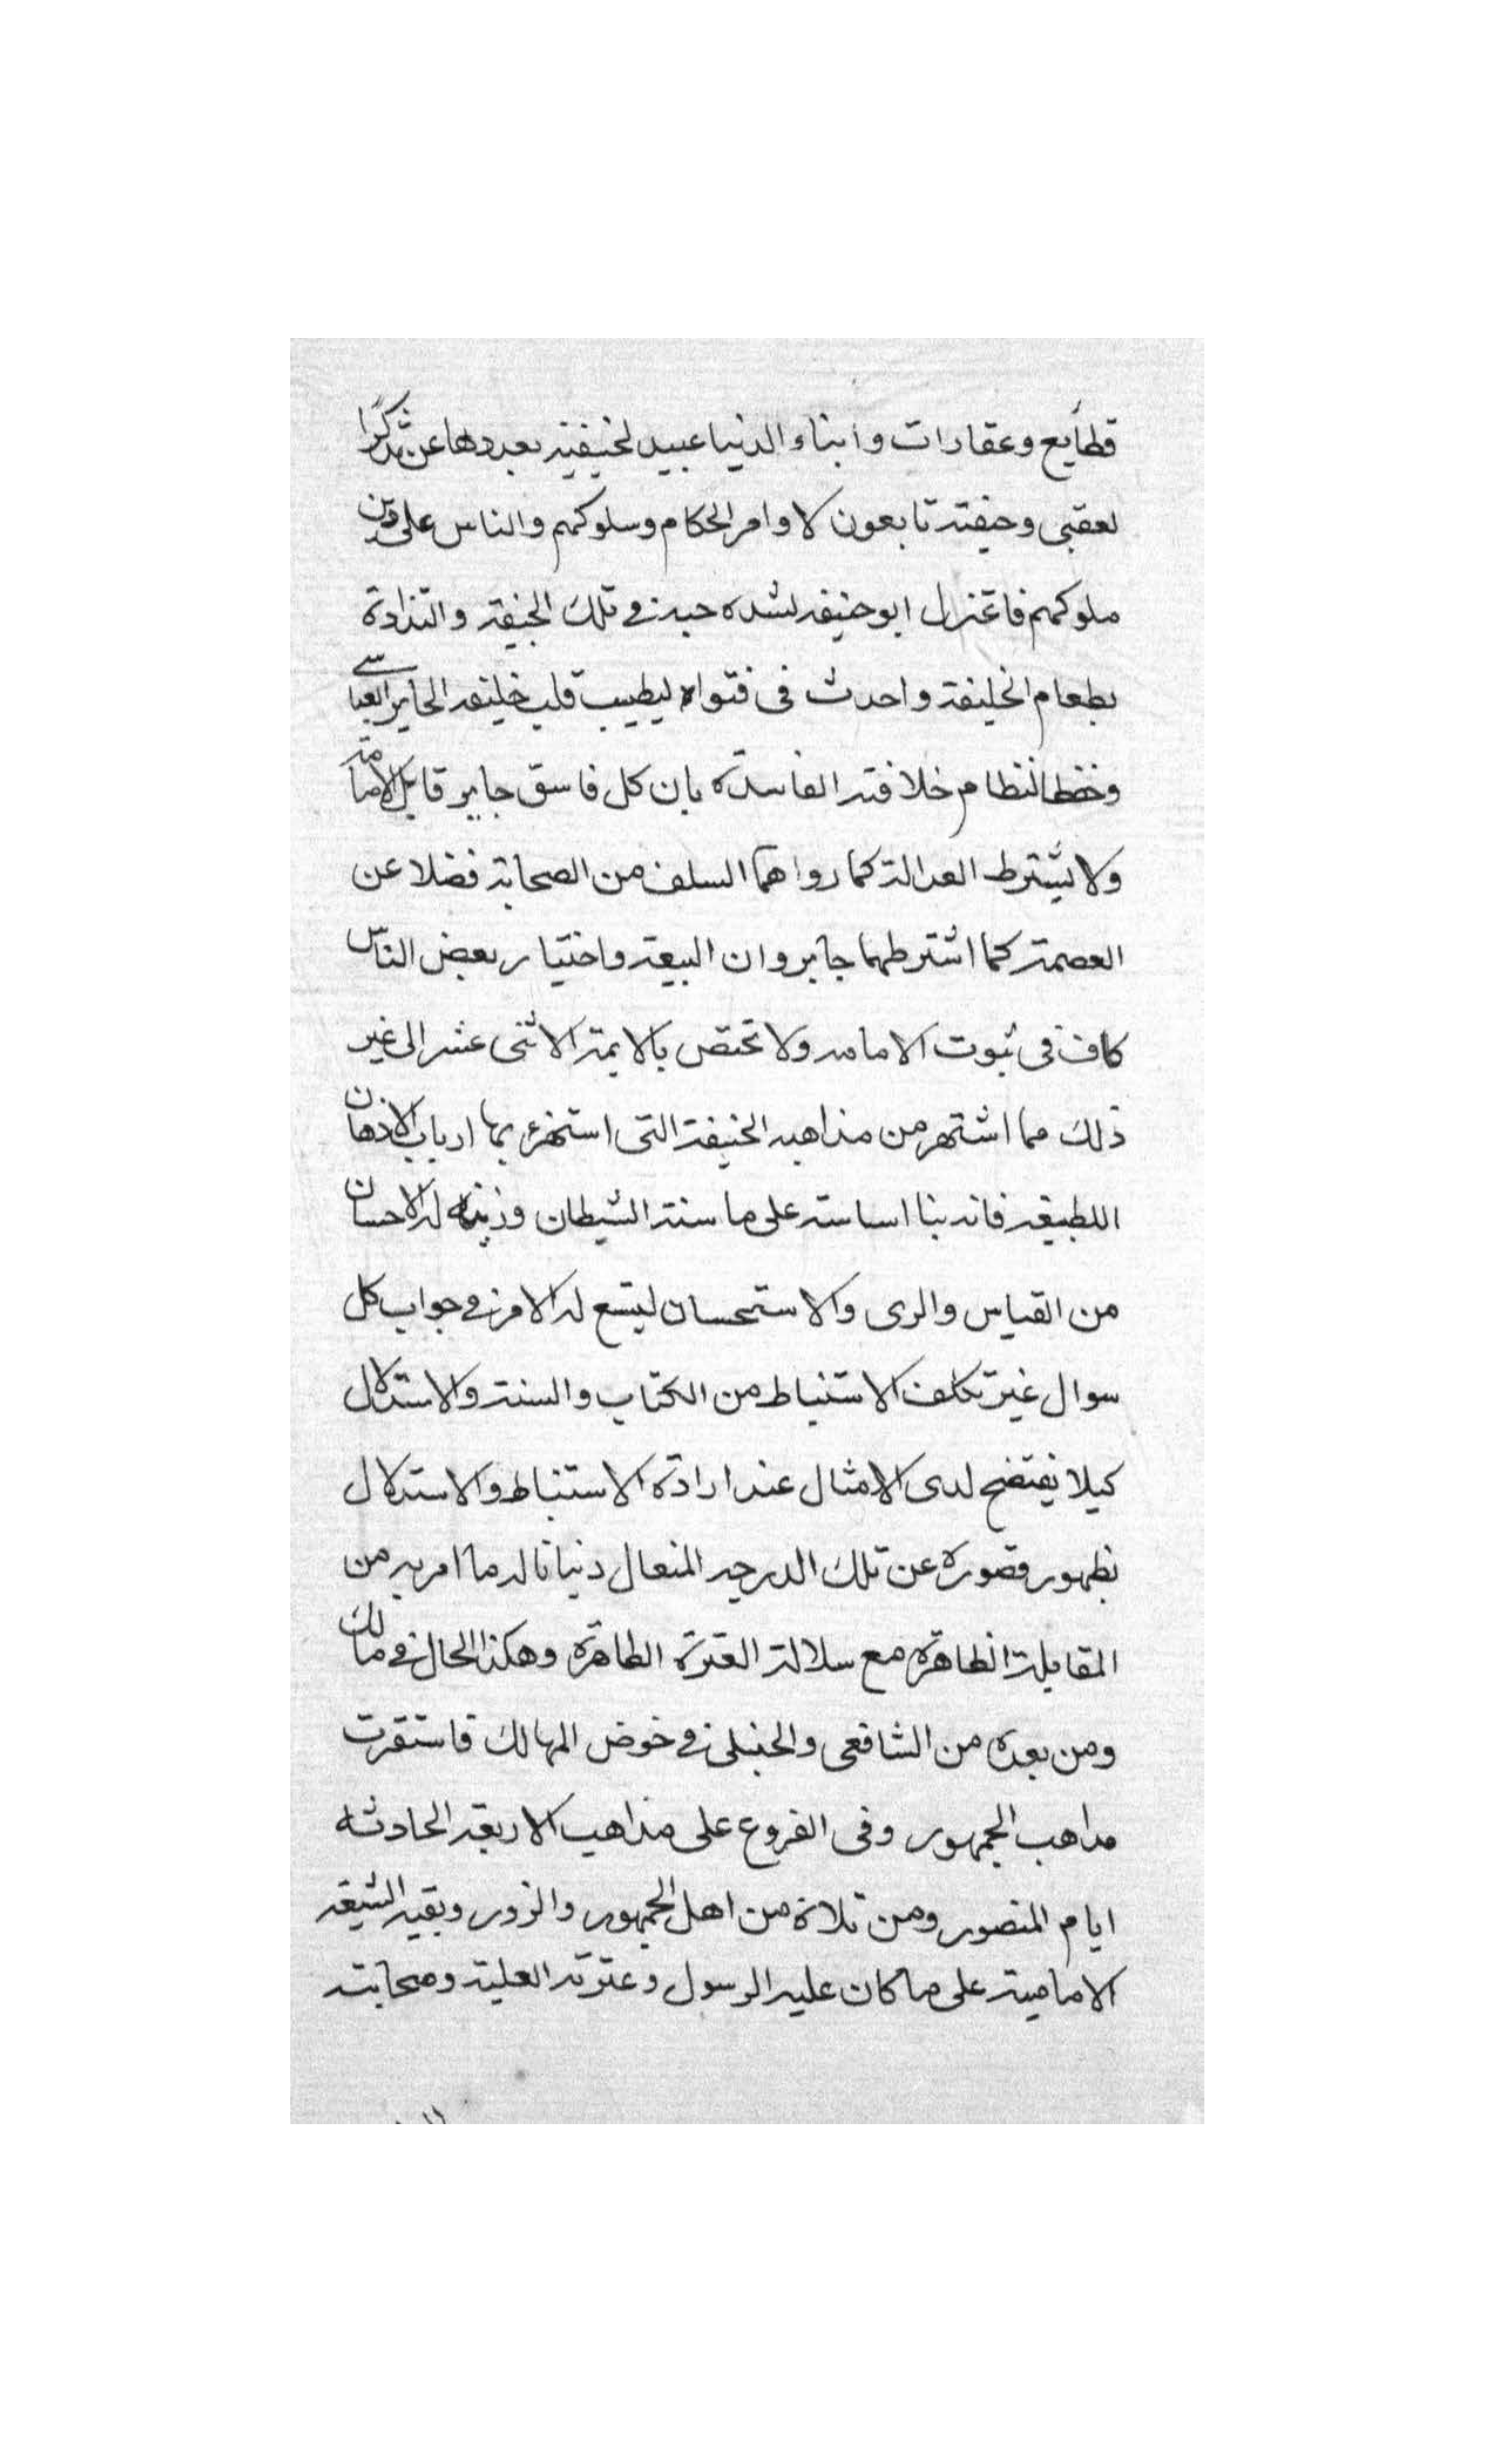 قطأيع وعقارات وابناء الدنيا عبيد لخيفية بعددها عن تذكرا
لعقبى وحيفته تابعون لاوامر الحكام وسلوكهم والناس على دين
ملوكهم فاغتزل ابو حنيفه لشده حبه في تلك الجيفة والتذاذة
بطعام الخليفة واحدث فى فتواه ليطيب قلب خليفه الجاير العباسے
وخفظا لنظام خلافته الفاسدة بان كل فاسق جاير قابل الامامة
ولا يشترط العدالة كما رواهما السلف من الصحابة فضلا عن
العصمة كما اشترطهما جابر وان البيعة واختيار بعض الناس
كاف فى ثبوت الامامه ولا تختص بالايمة الاثنى عشر الى غير
ذلك مما اشتهر من مذاهبه الخيفة التى استهزء بها ارباب الاذهان
اللطيفه فانه بنا اساسته على ما سنة الشيطان وزينه له الاحسان
من القياس والرى والاستحسان ليتسع له الامر في جواب كل
سوال غير تكلف الاستنباط من الكتاب والسنة والاستدلال
كيلا يفتضح لدى الامثال عند ارادة الاستنباط والاستدلال
نظهور قصوره عن تلك الدرجه المنعال دنيا ناله ما امر به من
المقابلة الظاهرة مع سلالة العترة الطاهرة وهكذا الحال في مالك
ومن بعده من الشافعى والحنبلى في خوض المهالك فاستقرت
مداهب الجمهور وفى الفروع على مذاهب الاربعه الحادثه
ايام المنصور ومن تلاة من اهل الجمهور والزور وبقيه الشيعه
الامامية على ما كان عليه الرسول وعترته العلية وصحابته